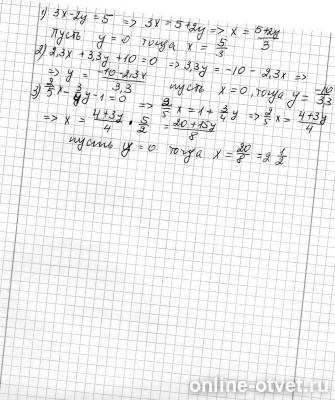 1) 3x-2y=5 => 3x=5+2y => x = (5+2y)/3
Пусть y=0 тогда x = 5/3
2) 2,3x+3,3y+10=0 => 3,3y=-10-2,3x =>
=> y = (-10-2,3x)/3,3 пусть x=0, тогда y = -10/3,3
3) 2/5 x - 3/4 y - 1 = 0 => 2/5 x = 1 + 3/4 y => 2/5 x = (4+3y)/4
=> x = (4+3y)/4 · 5/2 = (20+15y)/8
пусть y=0 тогда x = 20/8 = 2 1/2
online-otvet.ru